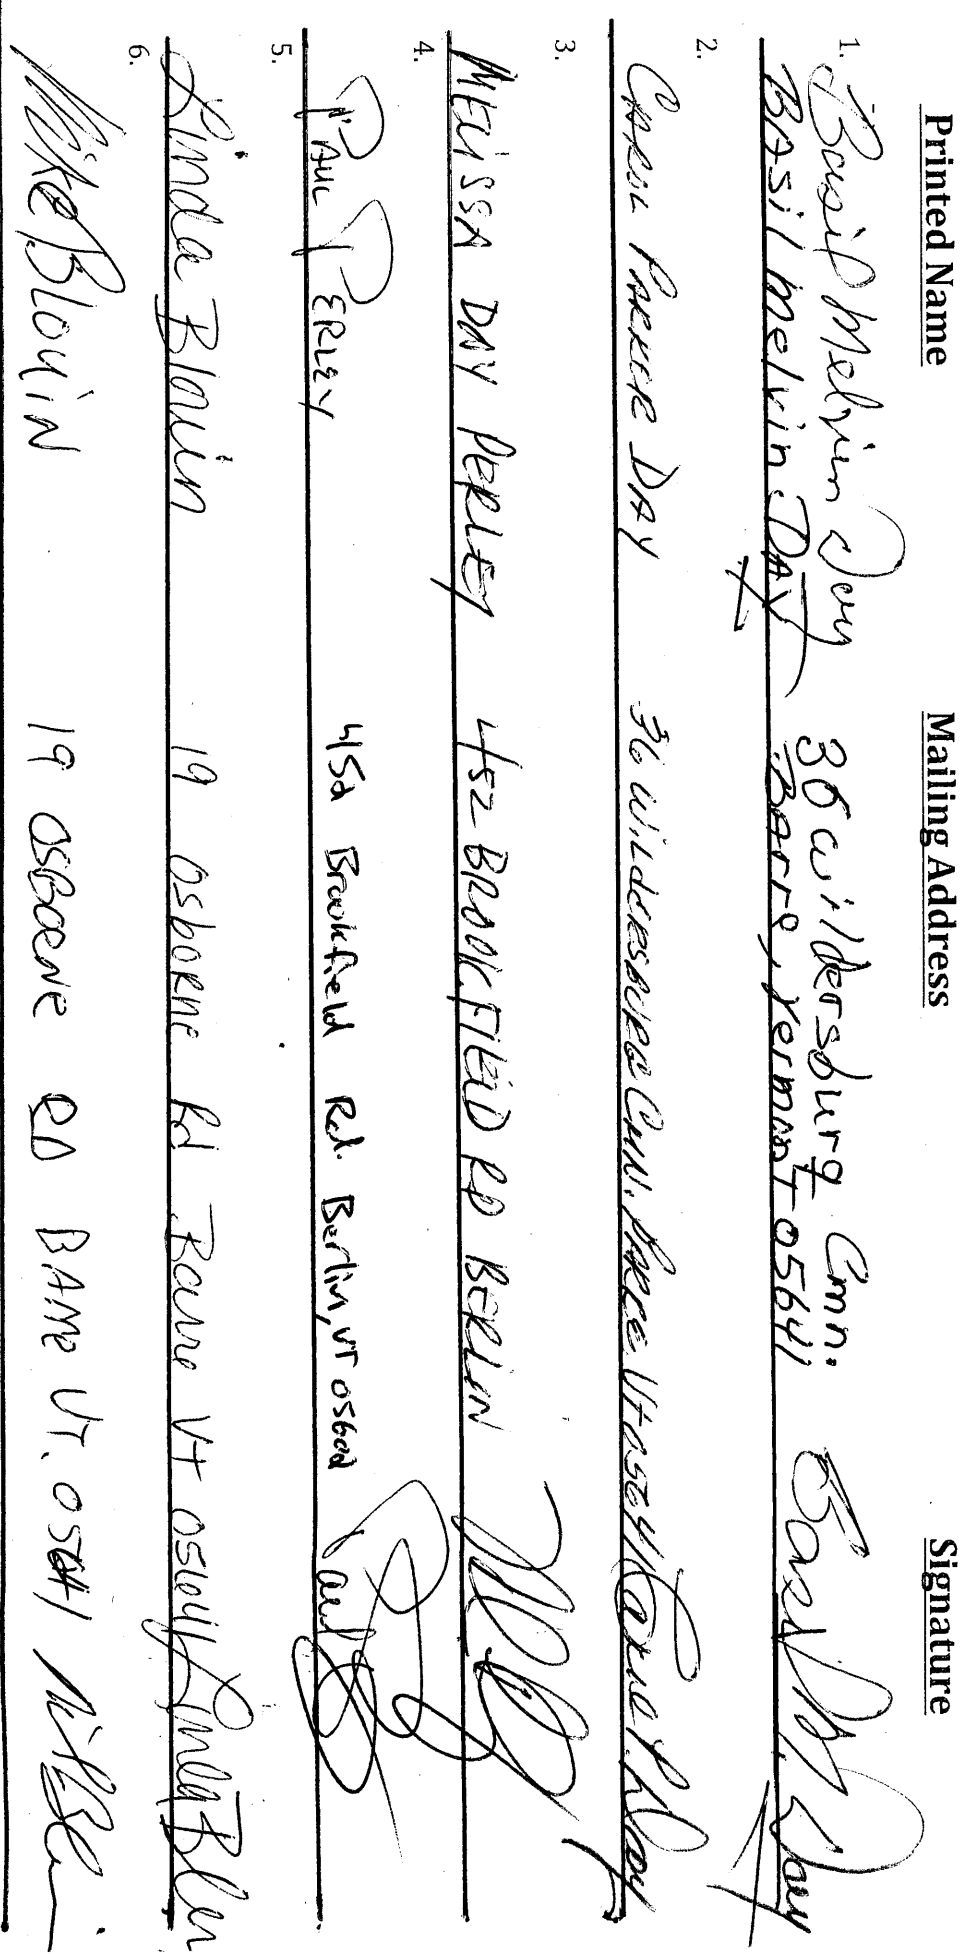 Printed Name Mailing Address Signature
1. Basil Melvin Day 36 Wildersburg Cmn. Basil M. Day
BASil Melvin DAY Barre, Vermont 05641
2. CAROL PARKER DAY 36 WILDERSBURG CMN. BARRE Vt 05641
3. MELISSA DAY PERLEY 452 BROOKFIELD RD BERLIN
4. PAUL PERLEY 452 Brookfield Rd. Berlin, VT 05602 Paul
5. Linda Blouin 19 Osborne Rd Barre Vt 05641 Linda Blouin
6. Mike Blouin 19 OSBORNE RD BARRE VT. 05641